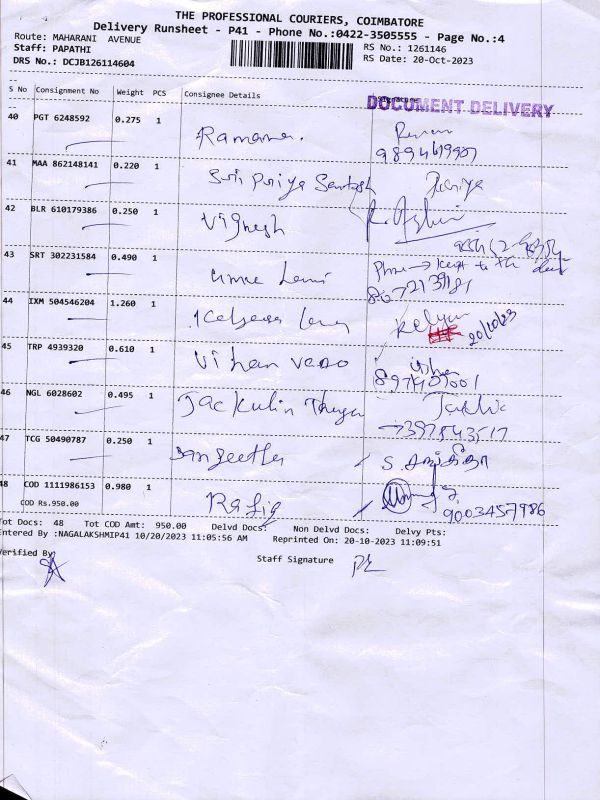 THE PROFESSIONAL COURIERS, COIMBATORE
Delivery Runsheet - P41 - Phone No.:0422-3505555 - Page No.:4
Route: MAHARANI AVENUE
RS No.: 1261146
Staff: PAPATHI
RS Date: 20-Oct-2023
DRS No.: DCJB126114604
S No Consignment No Weight PCS Consignee Details Signature
DOCUMENT DELIVERY
40 PGT 6248592 0.275 1 Ramana.
41 MAA 862148141 0.220 1 Sri Priya Santosh
42 BLR 610179386 0.250 1 Vignesh
43 SRT 302231584 0.490 1
Phone → kept to the
44 IXM 504546204 1.260 1 Kalyan
20/10/23
45 TRP 4939320 0.610 1 Vihan
46 NGL 6028602 0.495 1 Jackulin
47 TCG 50490787 0.250 1 Sangeetha S. சங்கீதா
48 COD 1111986153 0.980 1 Rafiq
COD Rs.950.00
9003457986
Tot Docs: 48 Tot COD Amt: 950.00 Delvd Docs: Non Delvd Docs: Delvy Pts:
Entered By :NAGALAKSHMIP41 10/20/2023 11:05:56 AM Reprinted On: 20-10-2023 11:09:51
Verified By: Staff Signature